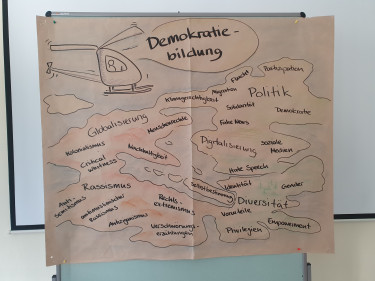 Demokratie-
bildung
Flucht
Partizipation
Migration
Politik
Klimagerechtigkeit
Solidarität
Demokratie
Globalisierung
Menschenrechte
Fake News
Kolonialismus
Nachhaltigkeit
Digitalisierung
Soziale
Medien
Critical
Whiteness
Hate Speech
Rassismus
Selbstbestimmung
Identität
Gender
Anti
Semitismus
Rechts-
extremismus
Diversität
Antimuslimischer
Rassismus
Vorurteile
Antiziganismus
Verschwörungs-
erzählungen
Privilegien
Empowerment